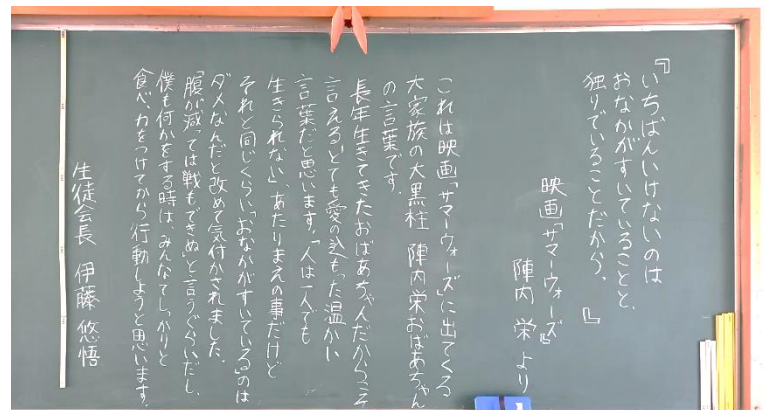 『いちばんいけないのは
おなかがすいていることと、
独りでいることだから。』
映画『サマーウォーズ』
陣内 栄より
これは映画「サマーウォーズ」に出てくる
大家族の大黒柱 陣内栄おばあちゃん
の言葉です。
長年生きてきたおばあちゃんだからこそ
言える、とても愛の込もった温かい
言葉だと思います。「人は一人でも
生きられない」、あたりまえの事だけど
それと同じくらい、「おなかがすいている」のは
ダメなんだと改めて気付かされました。
「腹が減っては戦もできぬ」と言うぐらいだし、
僕も何かをする時は、みんなでしっかりと
食べ、力をつけてから行動しようと思います。
生徒会長 伊藤 悠悟